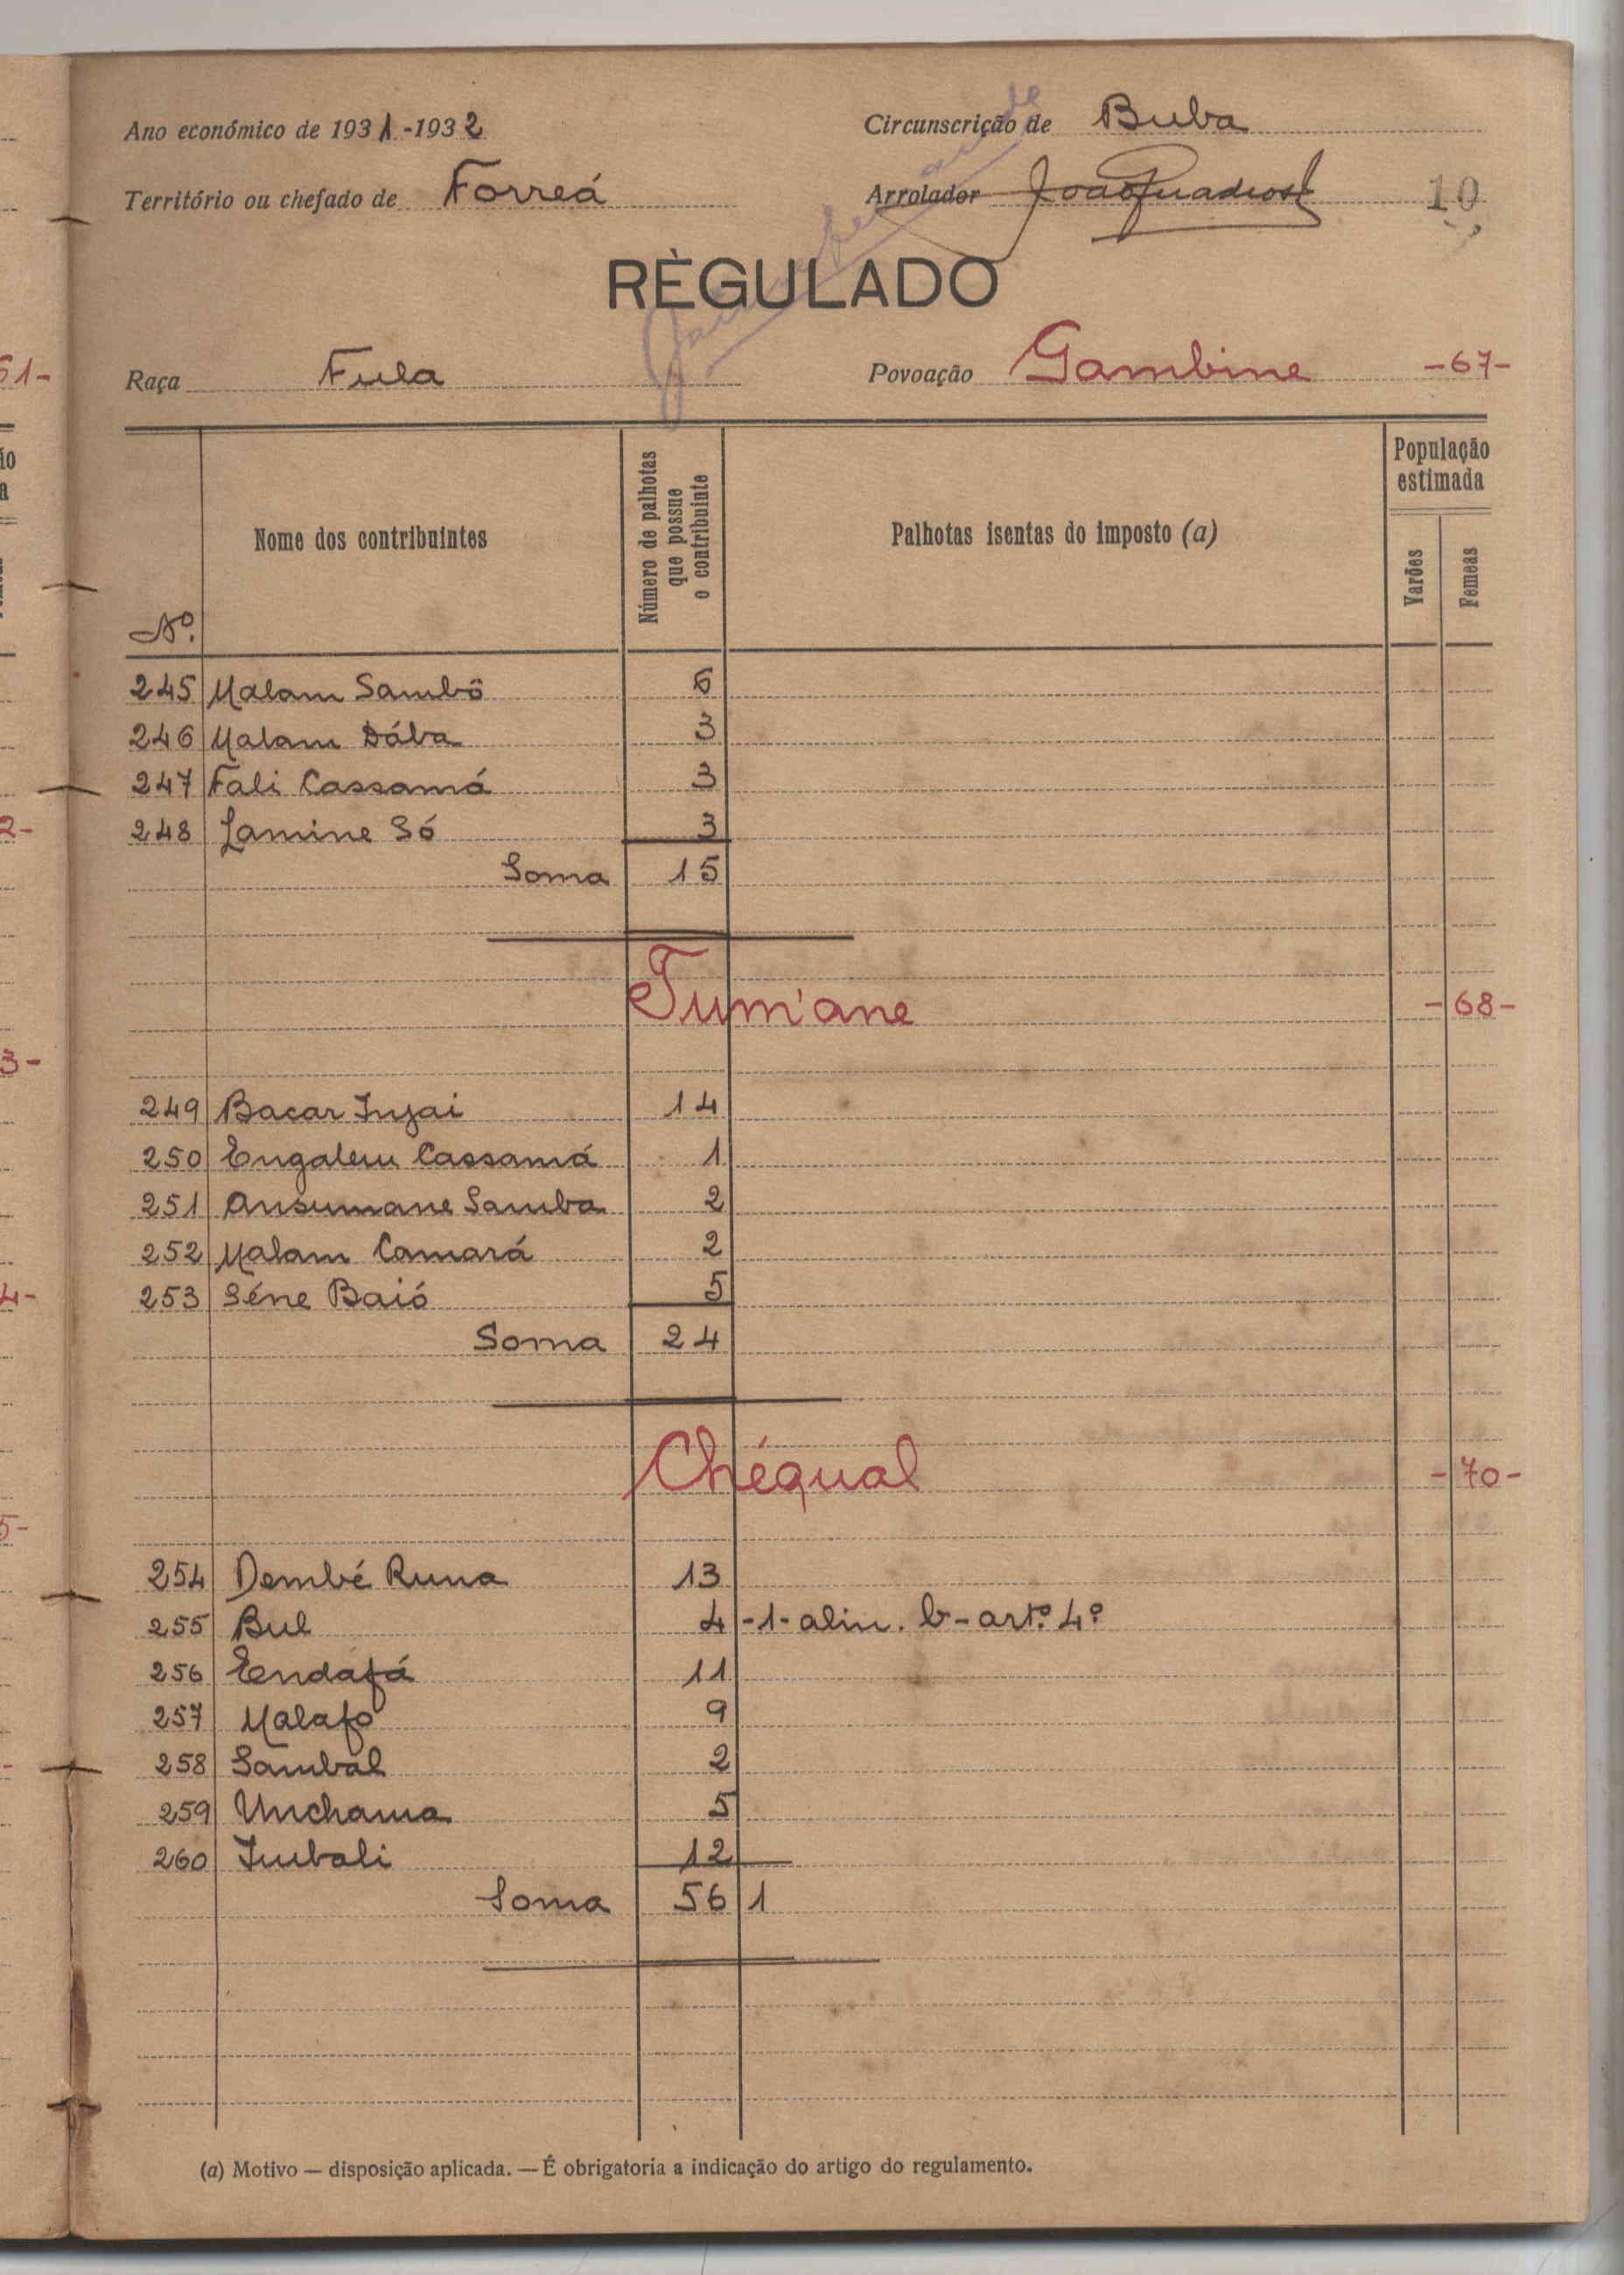 Ano económico de 1931-1932
Circunscrição de Buba
Território ou chefado de Forreá
Arrolador
10
RÈGULADO
Raça Fula
Povoação Gambine -67-
Nº.
Nome dos contribuintes
Número de palhotas que possue o contribuinte
Palhotas isentas do imposto (a)
População estimada
Varões
Femeas
245 Malam Sambô 6
246 Malam Dába 3
247 Fali Cassamá 3
248 Lamine Só 3
Soma 15
Tum'ane -68-
249 Bacar Injai 14
250 Engaleu Cassamá 1
251 Ansumane Samba 2
252 Malam Camará 2
253 Séne Baió 5
Soma 24
Chéqual -70-
254 Dembé Runa 13
255 Bul 4 -1- alin. b - artº. 4º
256 Endafá 11
257 Malafo 9
258 Sambal 2
259 Unchama 5
260 Iubali 12
Soma 56 1
(a) Motivo — disposição aplicada. — É obrigatoria a indicação do artigo do regulamento.